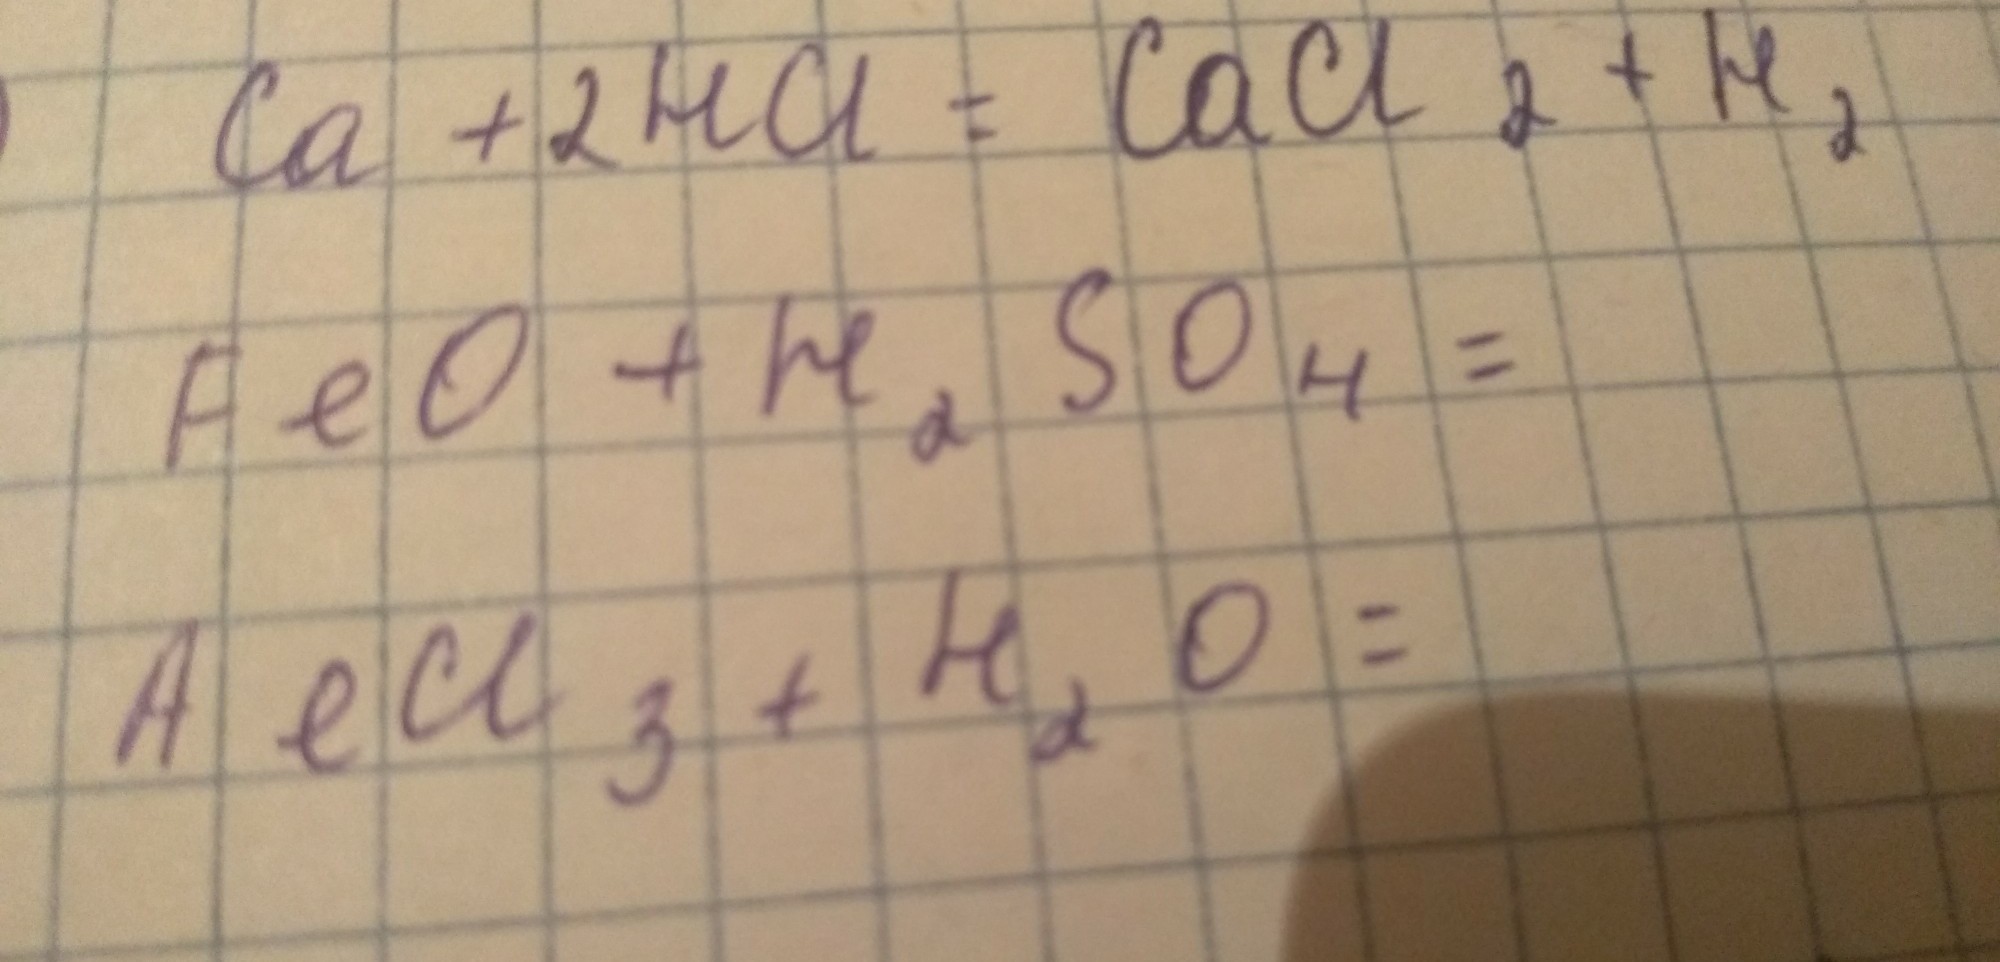 Ca + 2HCl = CaCl₂ + H₂
FeO + H₂SO₄ =
AeCl₃ + H₂O =